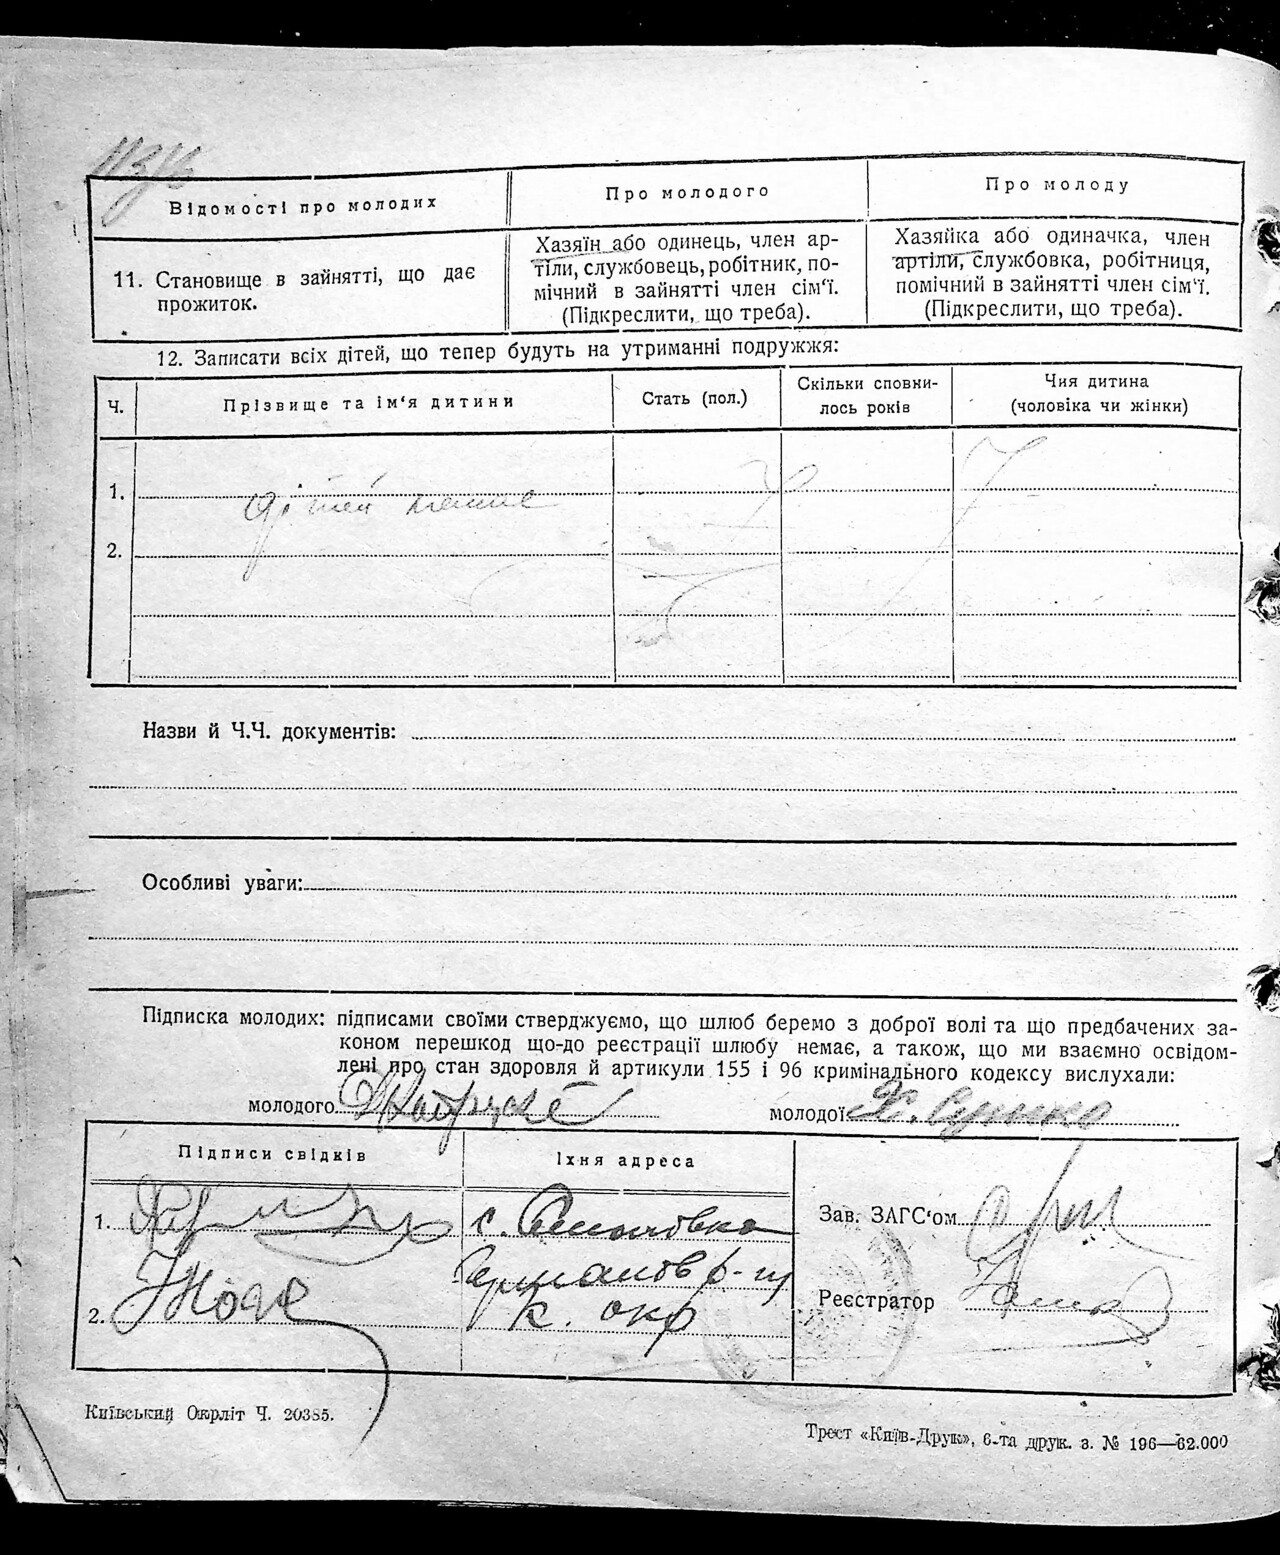 Відомості про молодих
Про молодого
Про молоду
11. Становище в зайнятті, що дає
прожиток.
Хазяїн або одинець, член ар-
тіли, службовець, робітник, по-
мічний в зайнятті член сім'ї.
(Підкреслити, що треба).
Хазяйка або одиначка, член
артіли, службовка, робітниця,
помічний в зайнятті член сім'ї.
(Підкреслити, що треба).
12. Записати всіх дітей, що тепер будуть на утриманні подружжя:
Ч.
Прізвище та ім'я дитини
Стать (пол.)
Скільки сповни-
лось років
Чия дитина
(чоловіка чи жінки)
1.
дітей немає
2.
Назви й Ч.Ч. документів:
Особливі уваги:
Підписка молодих: підписами своїми стверджуємо, що шлюб беремо з доброї волі та що предбачених за-
коном перешкод що-до реєстрації шлюбу немає, а також, що ми взаємно освідом-
лені про стан здоровля й артикули 155 і 96 кримінального кодексу вислухали:
молодого
молодої
Підписи свідків
Їхня адреса
1.
с.
Зав. ЗАГС'ом
2.
К. окр
Реєстратор
Київський Окрліт Ч. 20385.
Трест «Київ-Друк», 6-та друк. з. № 196—62.000